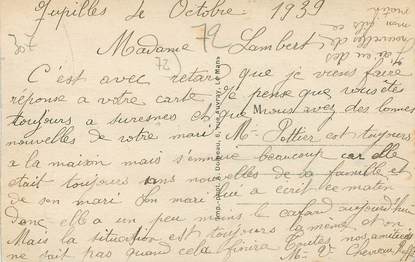 Jupilles le Octobre 1939
Madame Lambert
C'est avec retard que je viens faire
réponse a votre carte, je pense que vous êtes
toujours a suresnes et que vous avez des bonnes
nouvelles de votre mari. Me Pottier est toujours
a la maison mais s'ennuie beaucoup car elle
etait toujours sans nouvelles de sa famille et
de son mari. Son mari lui a ecrit ce matin
donc elle a un peu moins le cafard aujourd'hui
Mais la situation est toujours la même et on
ne sait pas quand cela finira Toutes nos amitiées
72
72
j'ai eu des
nouvelles de
mon fils ce
matin